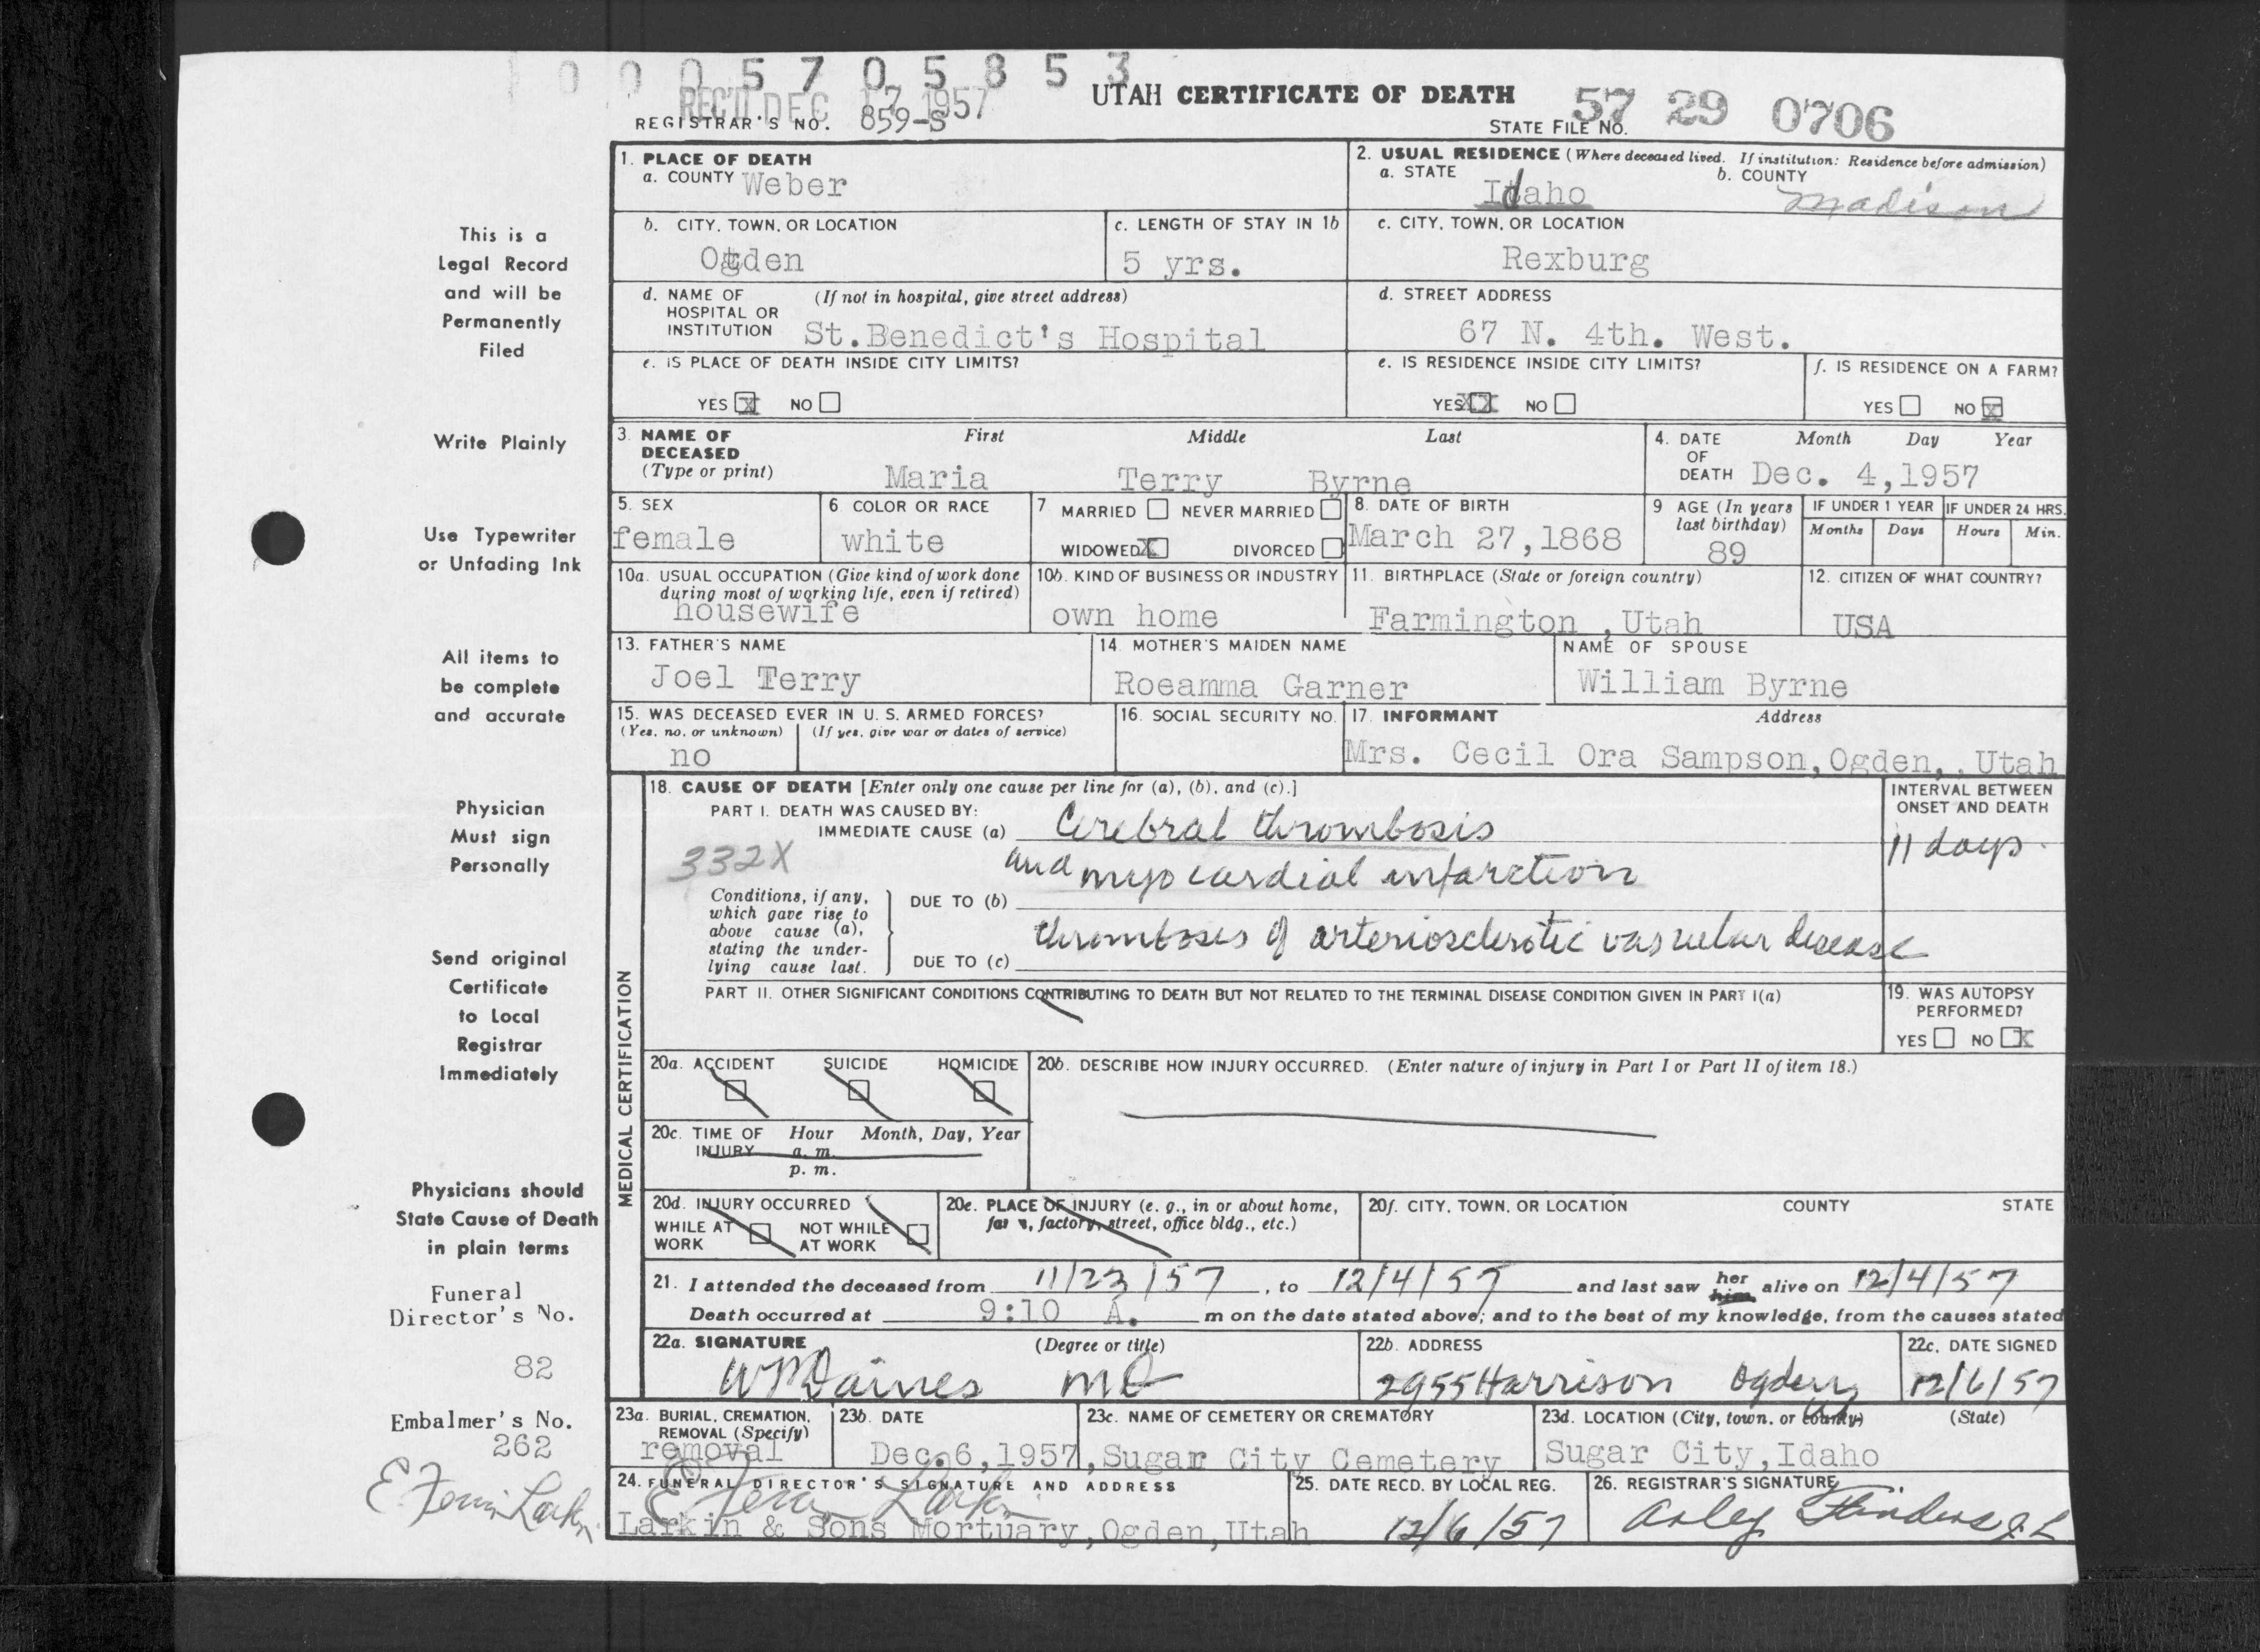 0 0 0 5 7 0 5 8 5 3
REC'D DEC 17 1957
UTAH CERTIFICATE OF DEATH
REGISTRAR'S NO. 859-S
STATE FILE NO. 57 29 0706
This is a
Legal Record
and will be
Permanently
Filed
Write Plainly
Use Typewriter
or Unfading Ink
All items to
be complete
and accurate
Physician
Must sign
Personally
Send original
Certificate
to Local
Registrar
Immediately
Physicians should
State Cause of Death
in plain terms
Funeral
Director's No.
82
Embalmer's No.
262
E. Ferrin Larkin
1. PLACE OF DEATH
a. COUNTY Weber
2. USUAL RESIDENCE (Where deceased lived. If institution: Residence before admission)
a. STATE Idaho b. COUNTY Madison
b. CITY, TOWN, OR LOCATION
Ogden
c. LENGTH OF STAY IN 1b
5 yrs.
c. CITY, TOWN, OR LOCATION
Rexburg
d. NAME OF (If not in hospital, give street address)
HOSPITAL OR
INSTITUTION St.Benedict's Hospital
d. STREET ADDRESS
67 N. 4th. West.
e. IS PLACE OF DEATH INSIDE CITY LIMITS?
YES X NO
e. IS RESIDENCE INSIDE CITY LIMITS?
YES XX NO
f. IS RESIDENCE ON A FARM?
YES NO X
3. NAME OF First Middle Last
DECEASED
(Type or print) Maria Terry Byrne
4. DATE Month Day Year
OF
DEATH Dec. 4,1957
5. SEX
female
6 COLOR OR RACE
white
7 MARRIED NEVER MARRIED
WIDOWED X DIVORCED
8. DATE OF BIRTH
March 27,1868
9 AGE (In years
last birthday)
89
IF UNDER 1 YEAR IF UNDER 24 HRS.
Months Days Hours Min.
10a. USUAL OCCUPATION (Give kind of work done
during most of working life, even if retired)
housewife
10b. KIND OF BUSINESS OR INDUSTRY
own home
11. BIRTHPLACE (State or foreign country)
Farmington ,Utah
12. CITIZEN OF WHAT COUNTRY?
USA
13. FATHER'S NAME
Joel Terry
14. MOTHER'S MAIDEN NAME
Roeamma Garner
NAME OF SPOUSE
William Byrne
15. WAS DECEASED EVER IN U. S. ARMED FORCES?
(Yes, no, or unknown) (If yes, give war or dates of service)
no
16. SOCIAL SECURITY NO.
17. INFORMANT Address
Mrs. Cecil Ora Sampson,Ogden,.Utah
MEDICAL CERTIFICATION
18. CAUSE OF DEATH [Enter only one cause per line for (a), (b), and (c).]
PART I. DEATH WAS CAUSED BY:
IMMEDIATE CAUSE (a) Cerebral thrombosis
332X and myocardial infarction
Conditions, if any,
which gave rise to
above cause (a),
stating the under-
lying cause last.
DUE TO (b)
thromboses of arteriosclerotic vascular disease
DUE TO (c)
INTERVAL BETWEEN
ONSET AND DEATH
11 days
PART II. OTHER SIGNIFICANT CONDITIONS CONTRIBUTING TO DEATH BUT NOT RELATED TO THE TERMINAL DISEASE CONDITION GIVEN IN PART I(a)
19. WAS AUTOPSY
PERFORMED?
YES NO X
20a. ACCIDENT SUICIDE HOMICIDE
20b. DESCRIBE HOW INJURY OCCURRED. (Enter nature of injury in Part I or Part II of item 18.)
20c. TIME OF Hour Month, Day, Year
INJURY a. m.
p. m.
20d. INJURY OCCURRED
WHILE AT NOT WHILE
WORK AT WORK
20e. PLACE OF INJURY (e. g., in or about home,
farm, factory, street, office bldg., etc.)
20f. CITY, TOWN, OR LOCATION COUNTY STATE
21. I attended the deceased from 11/23/57, to 12/4/57 and last saw her him alive on 12/4/57
Death occurred at 9:10 A. m on the date stated above; and to the best of my knowledge, from the causes stated
22a. SIGNATURE (Degree or title)
W M Daines MD
22b. ADDRESS
2955 Harrison Ogden,
22c. DATE SIGNED
12/6/57
23a. BURIAL, CREMATION,
REMOVAL (Specify)
removal
23b. DATE
Dec.6,1957,
23c. NAME OF CEMETERY OR CREMATORY
Sugar City Cemetery
23d. LOCATION (City, town, or county) (State)
Sugar City,Idaho
24. FUNERAL DIRECTOR'S SIGNATURE AND ADDRESS
E Ferrin Larkin
Larkin & Sons Mortuary,Ogden,Utah
25. DATE RECD. BY LOCAL REG.
12/6/57
26. REGISTRAR'S SIGNATURE
Arley Flinders J.L